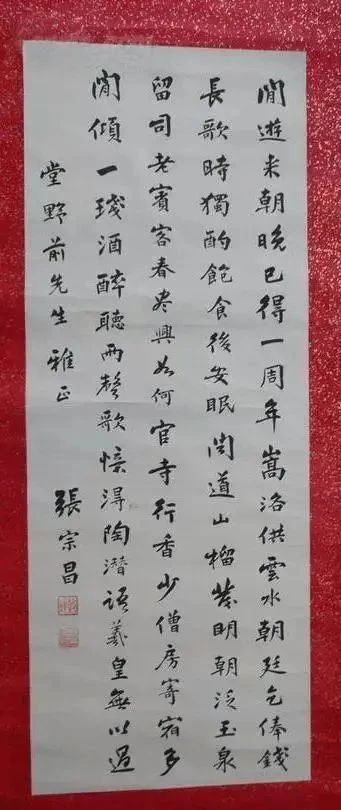 閒遊來朝晚已得一周年嵩洛供雲水朝廷乞俸錢
長歌時獨酌飽食後安眠聞道山榴發明朝泛玉泉
留司老賓客春盡興如何官寺行香少僧房寄宿多
閒傾一琖酒醉聽兩聲歌憶得陶潛語羲皇無以過
堂野前先生雅正
張宗昌